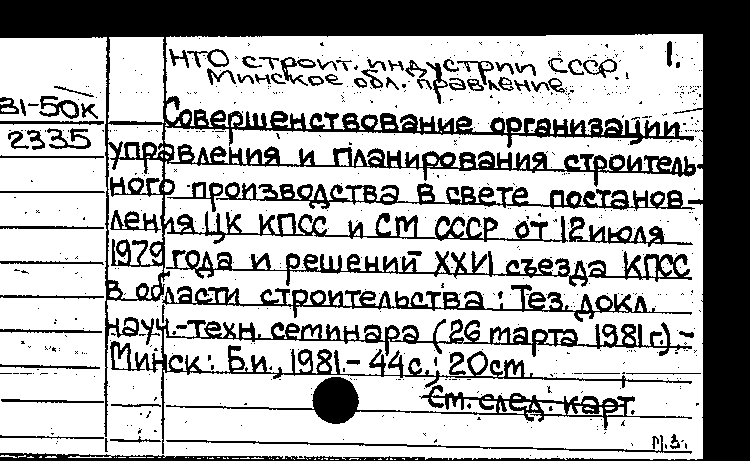 НТО строит. индустрии СССР. 1.
Минское обл. правление.
81-50К
2335
Совершенствование организации
управления и планирования строитель-
ного производства в свете постанов-
ления ЦК КПСС и СМ СССР от 12 июля
1979 года и решений XXVI съезда КПСС
в области строительства : Тез. докл.
науч.-техн. семинара (26 марта 1981 г.).-
Минск : Б.и., 1981.- 44 с.; 20 см.
См. след. карт.
М.З.